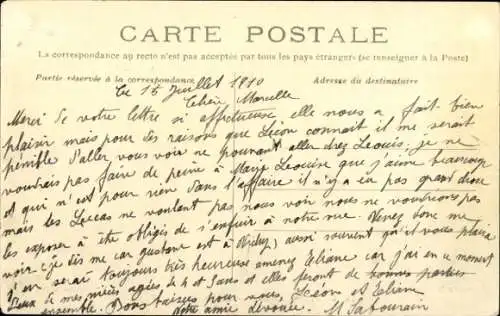 CARTE POSTALE
La correspondance au recto n'est pas acceptée par tous les pays étrangers (se renseigner à la Poste)
Partie réservée à la correspondance
Adresse du destinataire
Ce 15 Juillet 1910
Chère Marcelle
Merci de votre lettre si affectueuse, elle nous a fait bien
plaisir mais pour des raisons que Léon connait il me serait
pénible d'aller vous voir ne pouvant aller chez Louis, je ne
voudrais pas faire de peine à Marie Louise que j'aime beaucoup
et qui n'est pour rien dans l'affaire il n'y a eu pas grand chose
mais les Lucas ne voulant pas nous voir nous ne voudrions pas
les exposer à être obligés de s'enfuir à notre vue. Venez donc me
voir (je dis me car Gustave est à Vichy) aussi souvent qu'il vous plaira
j'en serai toujours très heureuse amenez Eliane car j'ai en ce moment
deux de mes nièces agées de 4 et 5 ans et elles feront de bonnes parties
ensemble. Bons baisers pour vous, Léon et Eliane
Votre amie dévouée. M Sabourain